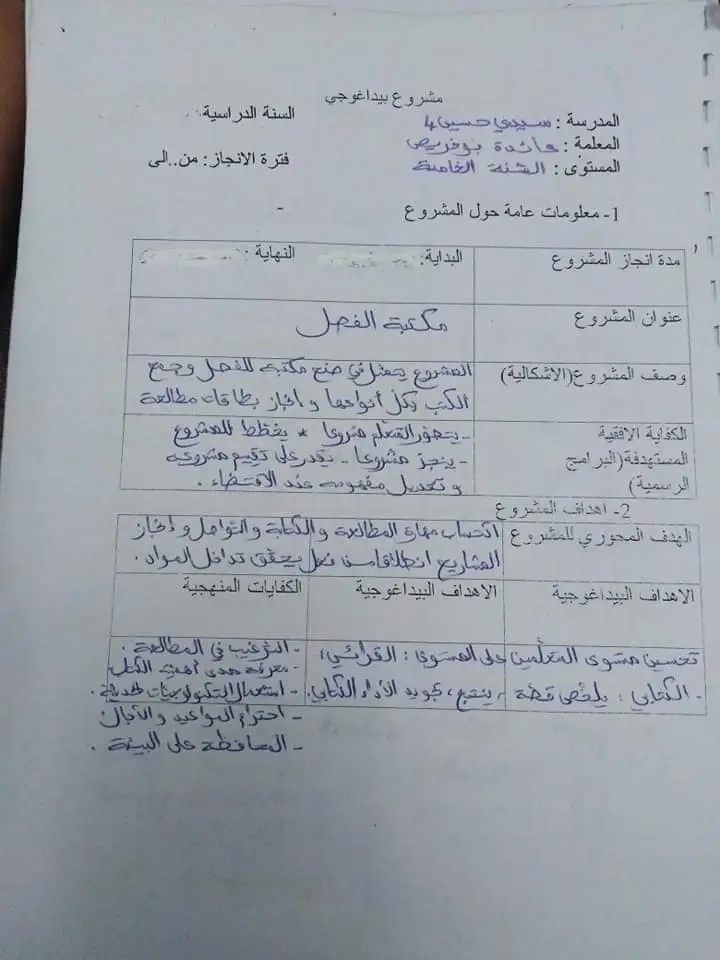 مشروع بيداغوجي
المدرسة : سيدي حسين 4
السنة الدراسية:
المعلمة : عائدة بوفريص
المستوى : السنة الخامسة
فترة الانجاز: من..الى
1- معلومات عامة حول المشروع -
مدة انجاز المشروع
البداية:
النهاية:
عنوان المشروع
مكتبة الفصل
وصف المشروع(الاشكالية)
المشروع يتمثل في صنع مكتبة للفصل وجمع
الكتب بكل أنواعها و انجاز بطاقات مطالعة
الكفاية الافقية
المستهدفة(البرامج
الرسمية)
- يتصور المتعلم مشروعا * يخطط للمشروع
- ينجز مشروعا - يقدر على تقييم مشروعه
و تعديل مفهومه عند الاقتضاء .
2- اهداف المشروع
الهدف المحوري للمشروع
اكتساب مهارة المطالعة و الكتابة و التواصل و انجاز
المشاريع انطلاقا من تعلم يحقق تداخل المواد .
الاهداف البيداغوجية
الاهداف البيداغوجية
الكفايات المنهجية
تحسين مستوى المتعلمين على المستوى : القرائي ،
- الكتابي : يلخص قصة ، ينتج ، تجويد الأداء الكتابي.
- الترغيب في المطالعة .
- معرفة مدى أهمية الكتاب
- استعمال التكنولوجيات الحديثة .
- احترام المواعيد و الآجال
- المحافظة على البيئة .